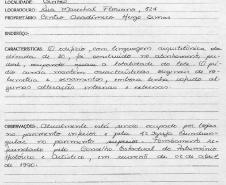 LOCALIDADE: Centro
LOGRADOURO: Rua Marechal Floriano, 524
PROPRIETÁRIO: Centro Acadêmico Hugo Simas
ENDEREÇO:
CARACTERÍSTICAS: O edifício, com linguagem arquitetônica da
década de 20, foi construído no alinhamento predial,
ocupando quase a totalidade do lote. O prédio
ainda mantém características originais de
e ornamentos, embora tenha sofrido al-
gumas alterações internas e externas.
OBSERVAÇÕES: Atualmente está sendo ocupado por lojas
no pavimento inferior e pela
no pavimento superior. Tombamento
pelo Conselho Estadual de Patrimônio
Histórico e Artístico, em de de abril
de 1990.